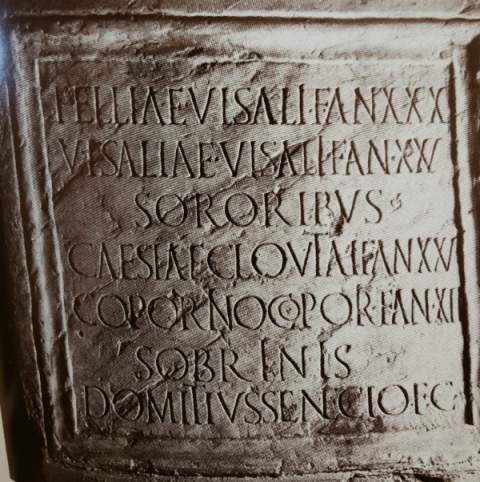 TELLIAE·VISALI·F·AN·XXX
VISALIAE·VISALI·F·AN·XXV
SORORIBVS
CAESIAE·CLOVTAI·F·AN·XXV
COPORNO·COPOR·F·AN·XII
SOBRINIS
DOMITIVS·SENECIO·F·C